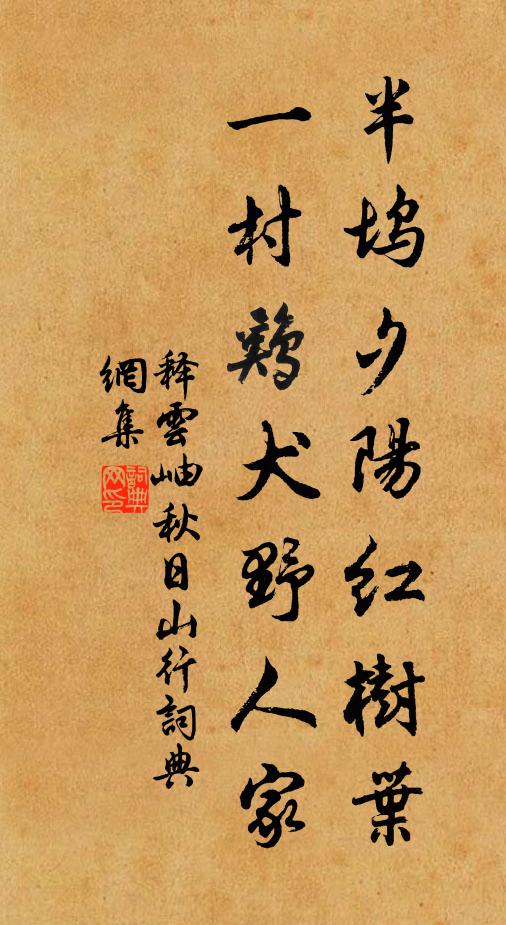 半坞夕陽紅樹葉
一村鷄犬野人家
释雲岫秋日山行詞典
網集
詞典
网印